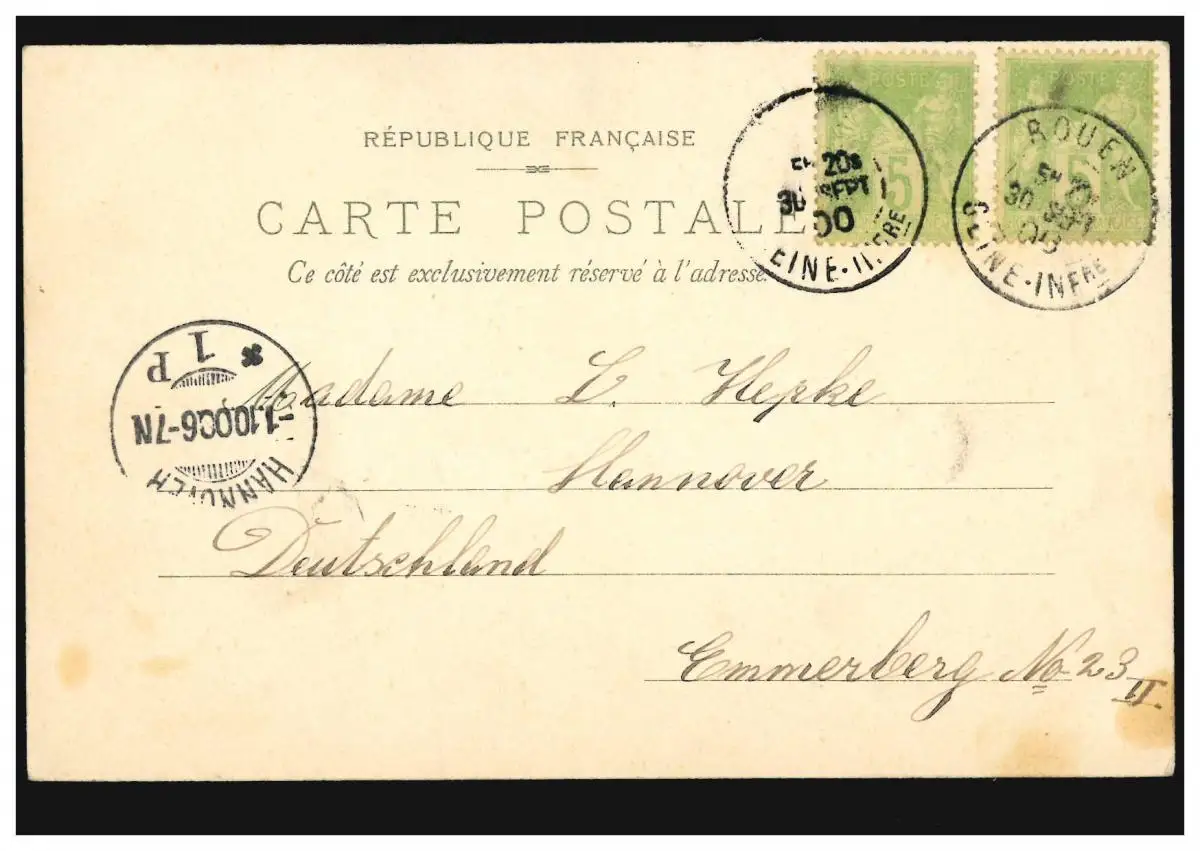 RÉPUBLIQUE FRANÇAISE
CARTE POSTALE
Ce côté est exclusivement réservé à l'adresse
POSTE
5
POSTE
5
5E 20S
30 SEPT
00
EINE-INFRE
ROUEN
5E
30 SEPT
00
SEINE-INFRE
1 P
-1.10.00.6-7N
HANNOVER
Madame L. Hepke
Hannover
Deutschland
Emmerberg No 23
II.